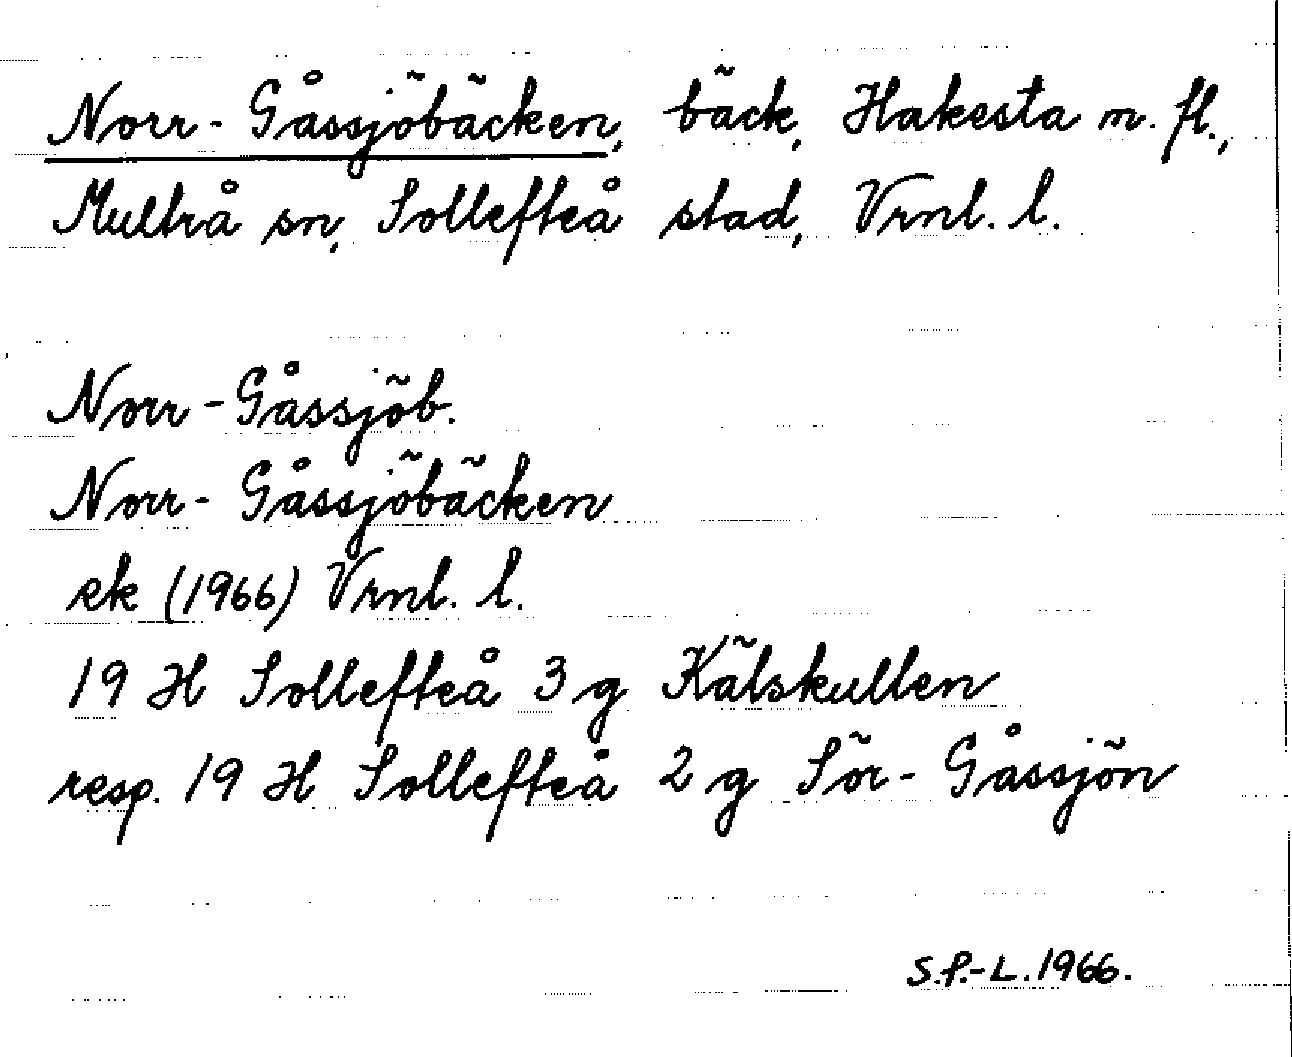 Norr-Gåssjöbäcken, bäck, Hakesta m. fl.,
Multrå sn, Sollefteå stad, Vrnl. l.
Norr-Gåssjöb.
Norr-Gåssjöbäcken
ek (1966) Vrnl. l.
19 H Sollefteå 3 g Kälskullen
resp. 19 H Sollefteå 2 g Sör-Gåssjön
S.P.-L. 1966.